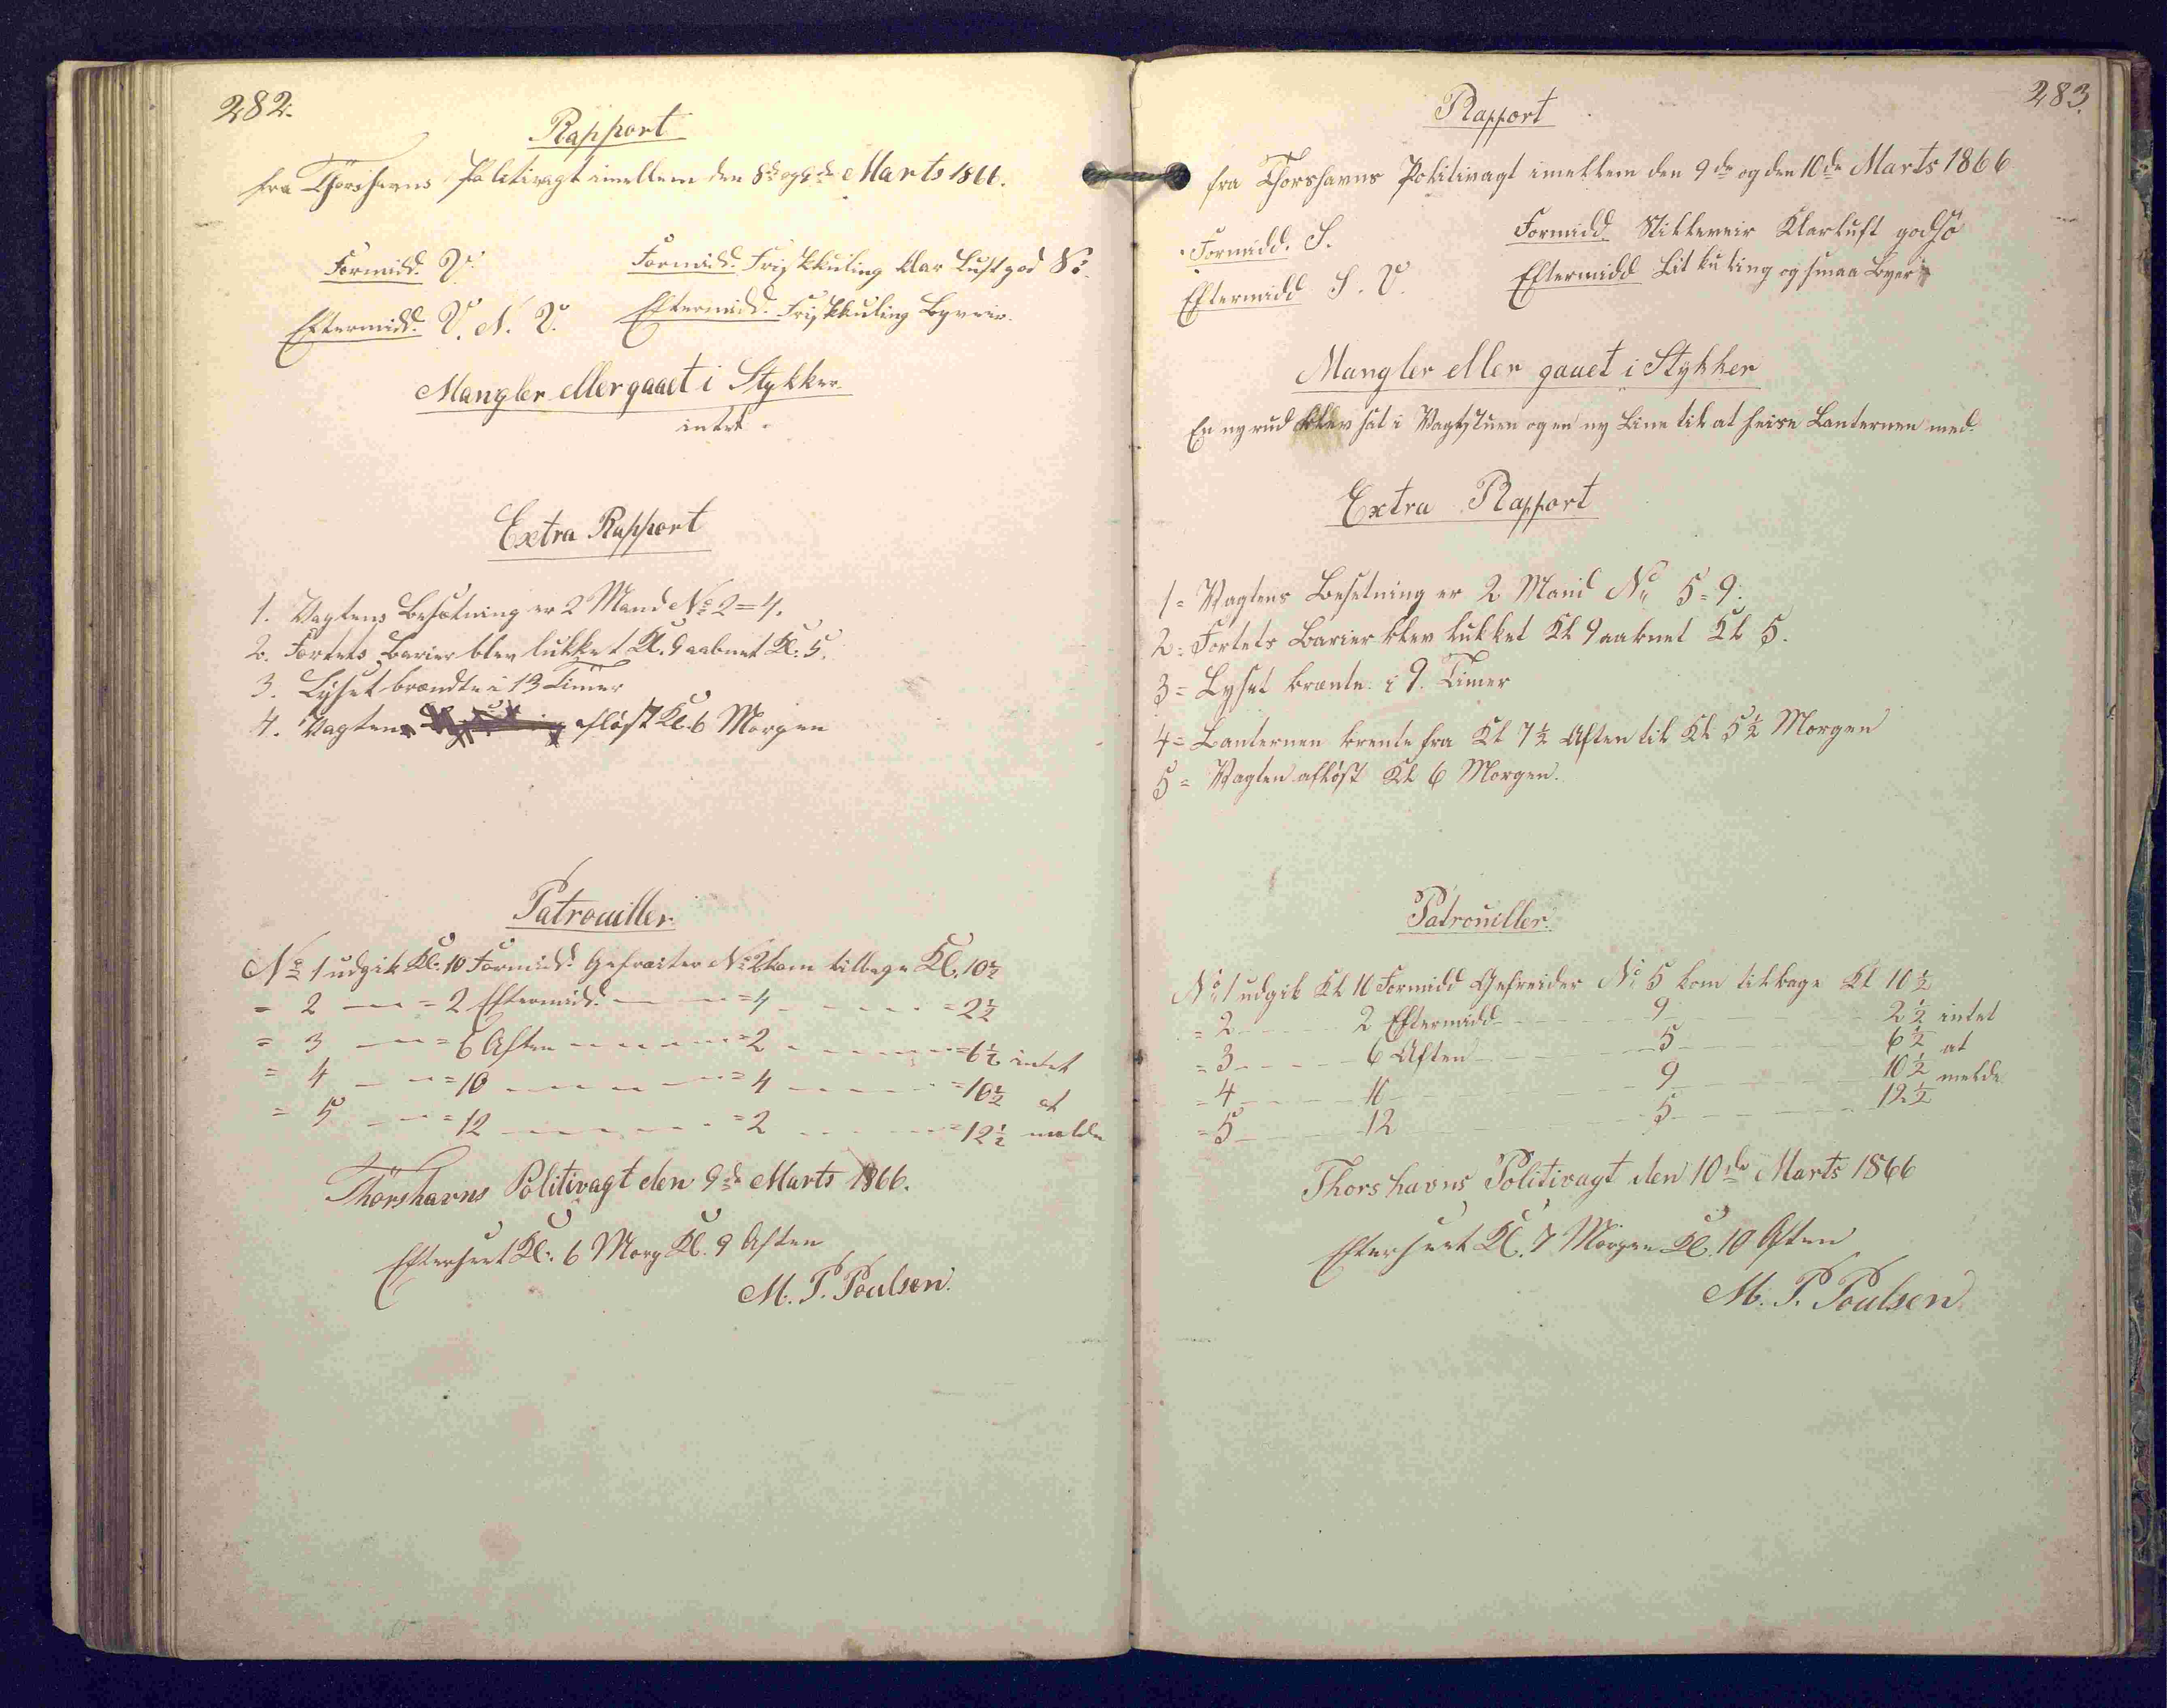 282.
Rapport
fra Thorshavns Politivagt imellem den 8de og 9de Marts 1866.
Formidd. V. Formidd. Frisk Kuling klar Luft god Sö.
Eftermidd. V. N. V. Eftermidd. Frisk Kuling Byveir.
Mangler eller gaaet i Stykker.
intet.
Extra Rapport
1. Vagtens Besætning er 2 Mand No 2 = 4.
2. Fortets Barier blev lukket Kl. 9 aabnet Kl: 5.
3. Lyset brændte i 13 Timer
4. Vagten aflöst Kl. 6 Morgen
Patrouiller.
No 1 udgik Kl: 10 Formidd. Gefreiter No 2 kom tilbage Kl. 10½
= 2 — — = 2 Eftermidd. — — = 4 - - - - = 2½
= 3 — — = 6 Aften - - - - = 2 - - - - = 6½ intet
= 4 — — = 10 - - - - = 4 - - - - = 10½ at
= 5 — — = 12 - - - - = 2 - - - - = 12½ melde
Thorshavns Politivagt den 9de Marts 1866.
Efterseet Kl: 6 Morg Kl. 9 Aften
M. P. Poulsen.
283.
Rapport
fra Thorshavns Politivagt imellem den 9de og den 10de Marts 1866
Formidd. S. Formidd Stilleveir Klarluft god Sö
Eftermidd S. V. Eftermidd Lit kuling og smaa Byer
Mangler eller gaaet i Stykker
En ny rud blev sat i Vagtstuen og en ny Line til at heise Lanternen med.
Extra Rapport
1 = Vagtens Besetning er 2 Mand No 5 = 9.
2 = Fortets Barier blev lukket Kl 9 aabnet Kl 5.
3 = Lyset brænte i 9. Timer
4 = Lanternen brente fra Kl 7½ Aften til Kl 5½ Morgen
5 = Vagten aflöst Kl 6 Morgen.
Patrouiller.
No 1 udgik Kl 10 Formidd Gefreider No 5 kom tilbage Kl 10½
= 2 - - - 2 Eftermidd - - - 9 - - - 2½ intet
= 3 - - - 6 Aften - - - 5 - - - 6½ at
= 4 - - - 10 - - - 9 - - - 10½ melde
= 5 - - - 12 - - - 5 - - - 12½
Thorshavns Politivagt den 10de Marts 1866
Efterseet Kl. 7 Morgen Kl. 10 Aften
M. P. Poulsen